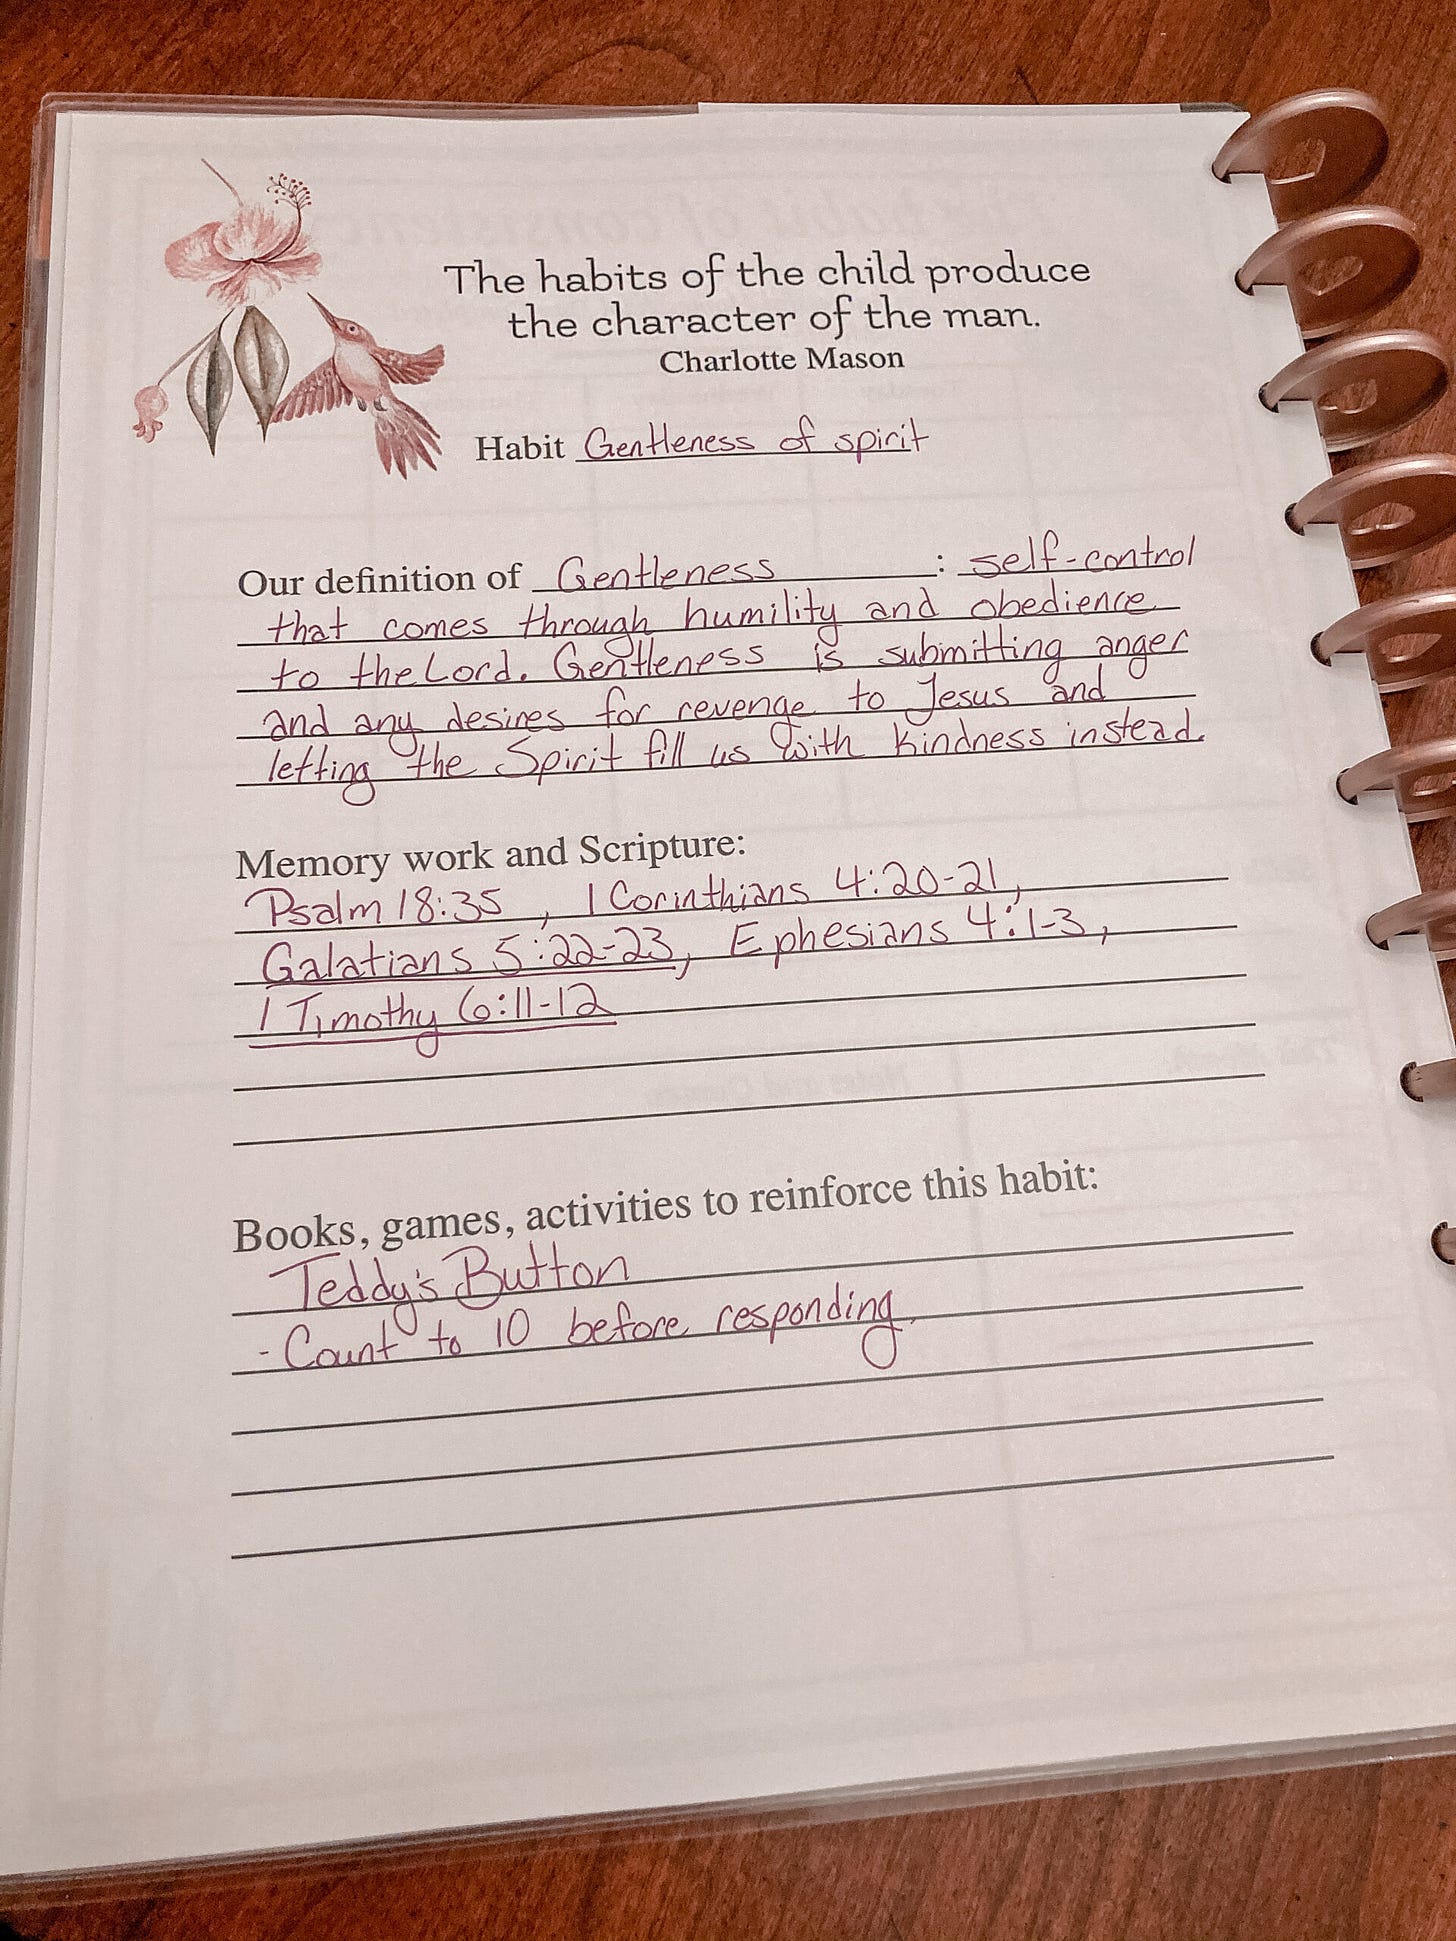 The habits of the child produce
the character of the man.
Charlotte Mason
Habit Gentleness of spirit
Our definition of Gentleness : self-control
that comes through humility and obedience
to the Lord. Gentleness is submitting anger
and any desires for revenge to Jesus and
letting the Spirit fill us with kindness instead.
Memory work and Scripture:
Psalm 18:35, 1 Corinthians 4:20-21,
Galatians 5:22-23, Ephesians 4:1-3,
1 Timothy 6:11-12
Books, games, activities to reinforce this habit:
Teddy's Button
- Count to 10 before responding.